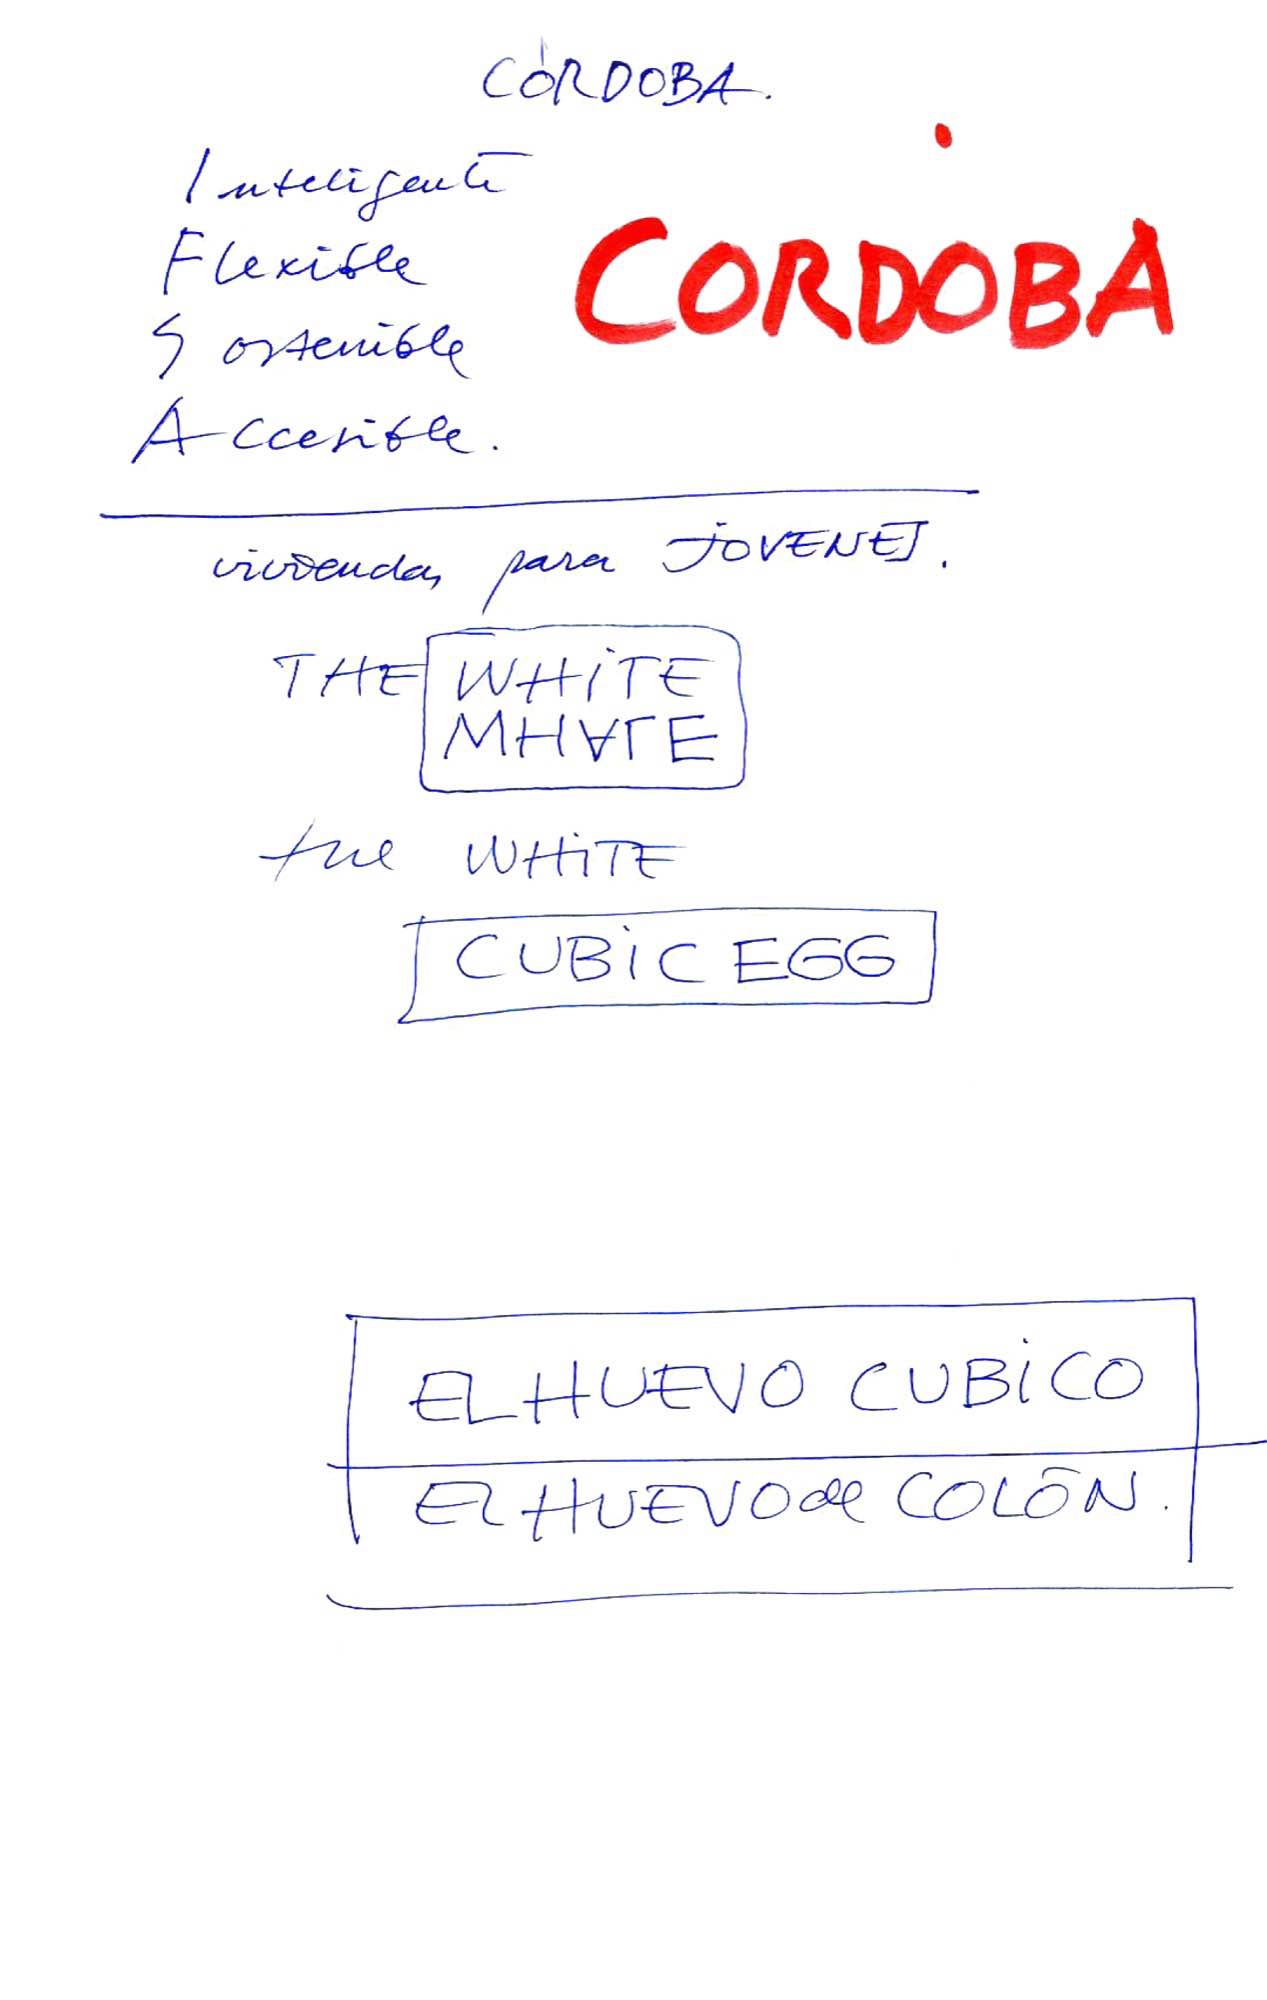 CÓRDOBA.
Inteligente
Flexible
CORDOBA
Sostenible
Accesible.
viviendas para JOVENES.
THE WHITE
WHALE
the WHITE
CUBIC EGG
EL HUEVO CUBICO
El HUEVO de COLÓN.